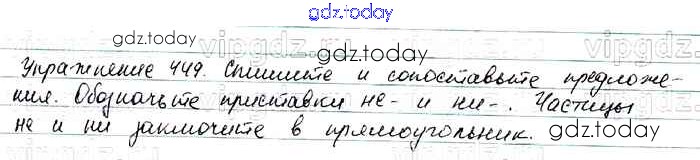 gdz.today
gdz.today
gdz.today
vipgdz.
Упражнение 449. Спишите и сопоставьте предложе-
ния. Обозначьте приставки не- и ни-. Частицы
не и ни заключите в прямоугольник.
gdz.today